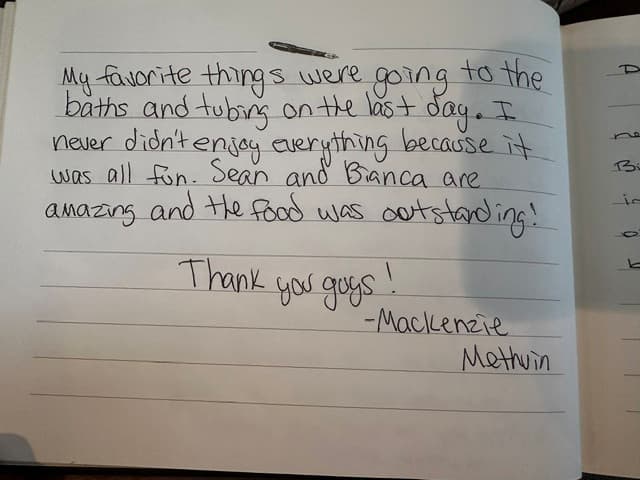 My favorite things were going to the
baths and tubing on the last day. I
never didn't enjoy everything because it
was all fun. Sean and Bianca are
amazing and the food was outstanding!
Thank you guys!
-Mackenzie
Methvin
D
ne
Bi
in
o
b